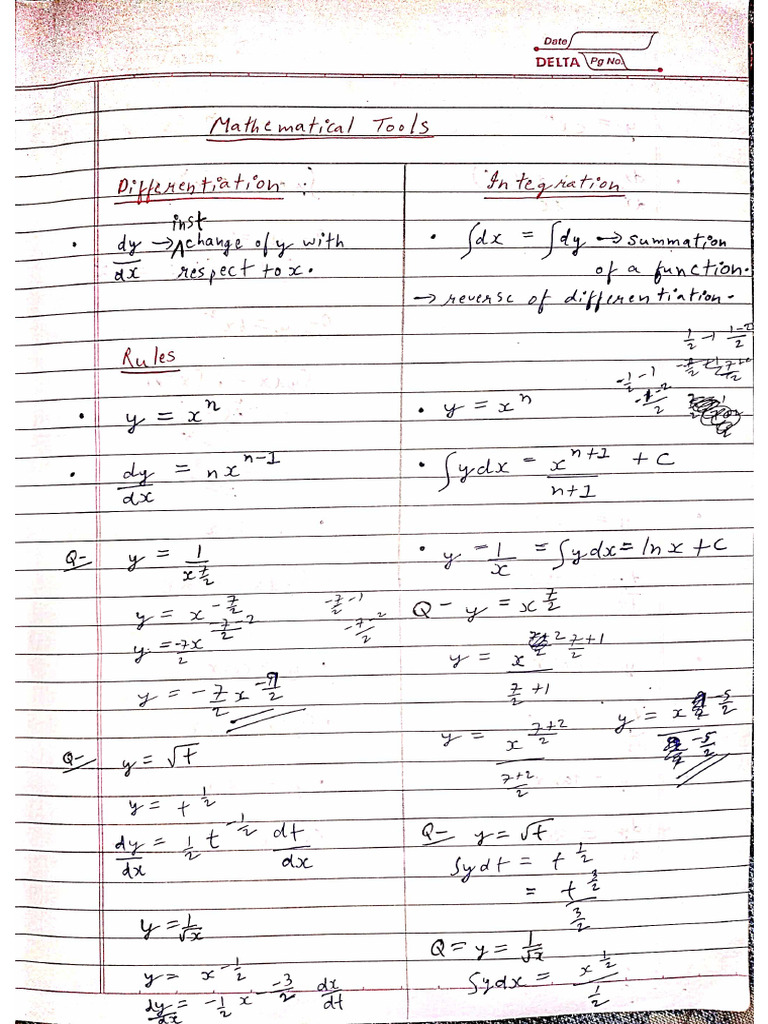 Date
DELTA Pg No.
Mathematical Tools
Differentiation :
inst
• dy/dx → ∧ change of y with
respect to x.
Rules
• y = x^n
• dy/dx = nx^(n-1)
Q- y = 1/x^(7/2)
y = x^(-7/2)
y = -7x/2^(-7/2-2)
-7/2-1
-7-2/2
y = -7/2 x^(-9/2)
Q- y = √t
y = t^(1/2)
dy/dx = 1/2 t^(-1/2) dt/dx
y = 1/√x
y = x^(-1/2)
dy/dx = -1/2 x^(-3/2) dx/dt
Integration
• ∫dx = ∫dy → summation
of a function.
→ reverse of differentiation.
-1/2-1
-1-2/2
• y = x^n
• ∫ydx = x^(n+1)/(n+1) + C
• y = 1/x = ∫ydx = ln x + C
Q- y = x^(7/2)
y = x^(7/2+1)/(7/2+1)
y = x^((7+2)/2)/((7+2)/2)
y = x^(-5/2)/(-5/2)
Q- y = √t
∫ydt = t^(1/2)
= t^(3/2)/(3/2)
Q = y = 1/√x
∫ydx = x^(1/2)/(1/2)